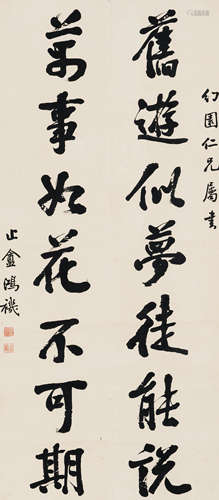 幻園仁兄屬書
舊遊似夢徒能說
萬事如花不可期
止盦鴻禨